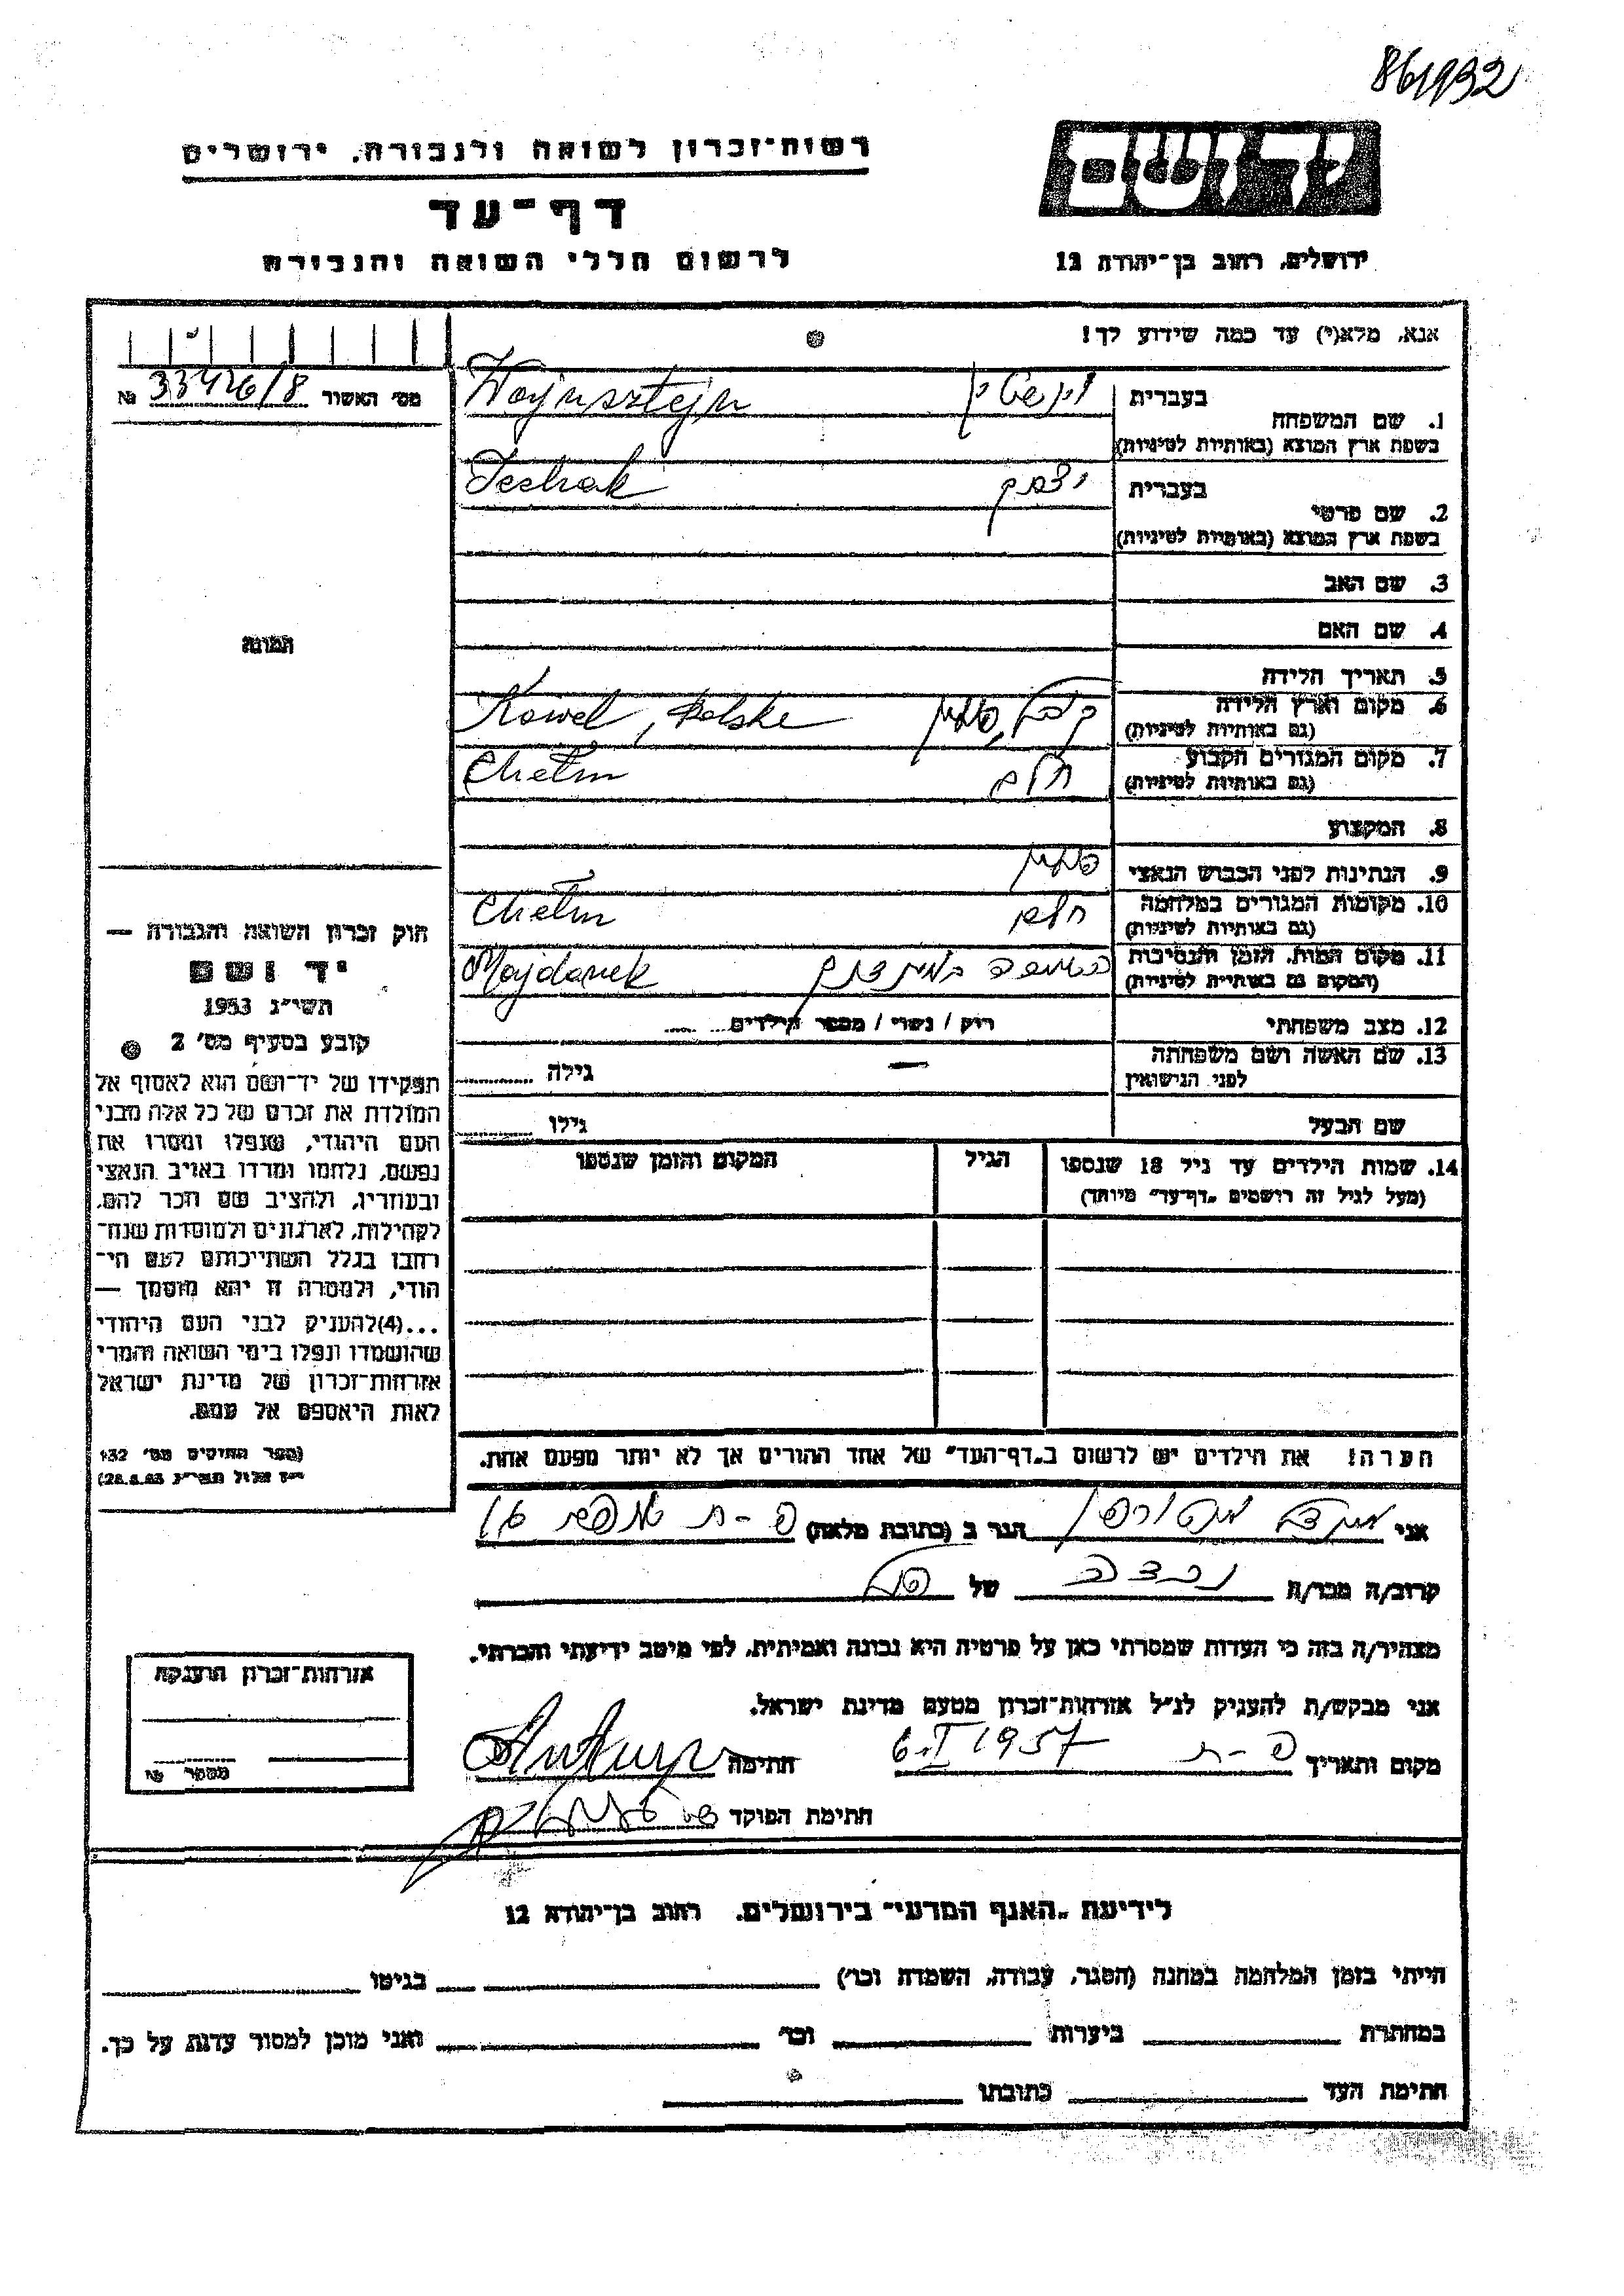 861932
רשות-זכרון לשואה ולגבורה, ירושלים
דף-עד
לרשום חללי השואה והגבורה
יד ושם
ירושלים, רחוב בן-יהודה 12
אנא, מלא(י) עד כמה שידוע לך!
מס' האשור № 33426/8
1. שם המשפחה
בעברית
Wajnsztejn
בשפת ארץ המוצא (באותיות לטיניות)
2. שם פרטי
בעברית יצחק
Icchak
בשפת ארץ המוצא (באותיות לטיניות)
3. שם האב
4. שם האם
5. תאריך הלידה
6. מקום וארץ הלידה
(גם באותיות לטיניות)
קובל, פולין Kowel, Polske
7. מקום המגורים הקבוע
(גם באותיות לטיניות)
חלם Chełm
8. המקצוע
9. הנתינות לפני הכבוש הנאצי פולין
10. מקומות המגורים במלחמה
(גם באותיות לטיניות)
חלם Chełm
11. מקום המות, הזמן והנסיבות
(המקום גם באותיות לטיניות)
במידנק Majdanek
12. מצב משפחתי רוק / נשוי / מספר הילדים
13. שם האשה ושם משפחתה
לפני הנישואין
— גילה
שם הבעל גילו
14. שמות הילדים עד גיל 18 שנספו הגיל המקום והזמן שנספו
(מעל לגיל זה רושמים "דף-עד" מיוחד)
הערה! את הילדים יש לרשום ב"דף-העד" של אחד ההורים אך לא יותר מפעם אחת.
תמונה
חוק זכרון השואה והגבורה —
יד ושם
תשי"ג 1953
קובע בסעיף מס' 2
תפקידו של יד-ושם הוא לאסוף אל
המולדת את זכרם של כל אלה מבני
העם היהודי, שנפלו ומסרו את
נפשם, נלחמו ומרדו באויב הנאצי
ובעוזריו, ולהציב שם וזכר להם,
לקהילות, לארגונים ולמוסדות שנח-
רבו בגלל השתייכותם לעם הי-
הודי, ולמטרה זו יהא מוסמך —
...(4)להעניק לבני העם היהודי
שהושמדו ונפלו בימי השואה והמרי
אזרחות-זכרון של מדינת ישראל
לאות היאספם אל עמם.
(ספר החוקים מס' 132
י"ז אלול תשי"ג 28.8.53)
אני הגר ב (כתובת מלאה) פ-ת
קרוב/ה מכר/ה של
מצהיר/ה בזה כי העדות שמסרתי כאן על פרטיה היא נכונה ואמיתית, לפי מיטב ידיעתי והכרתי.
אני מבקש/ת להעניק לנ"ל אזרחות-זכרון מטעם מדינת ישראל.
מקום ותאריך פ-ת 6.I 1957 חתימה
חתימת הפוקד
אזרחות-זכרון הוענקה
מספר №
לידיעת "האגף המדעי" בירושלים, רחוב בן-יהודה 12
הייתי בזמן המלחמה במחנה (הסגר, עבודה, השמדה וכו') בגיטו
במחתרת ביערות וכו' ואני מוכן למסור עדות על כך.
חתימת העד כתובתו